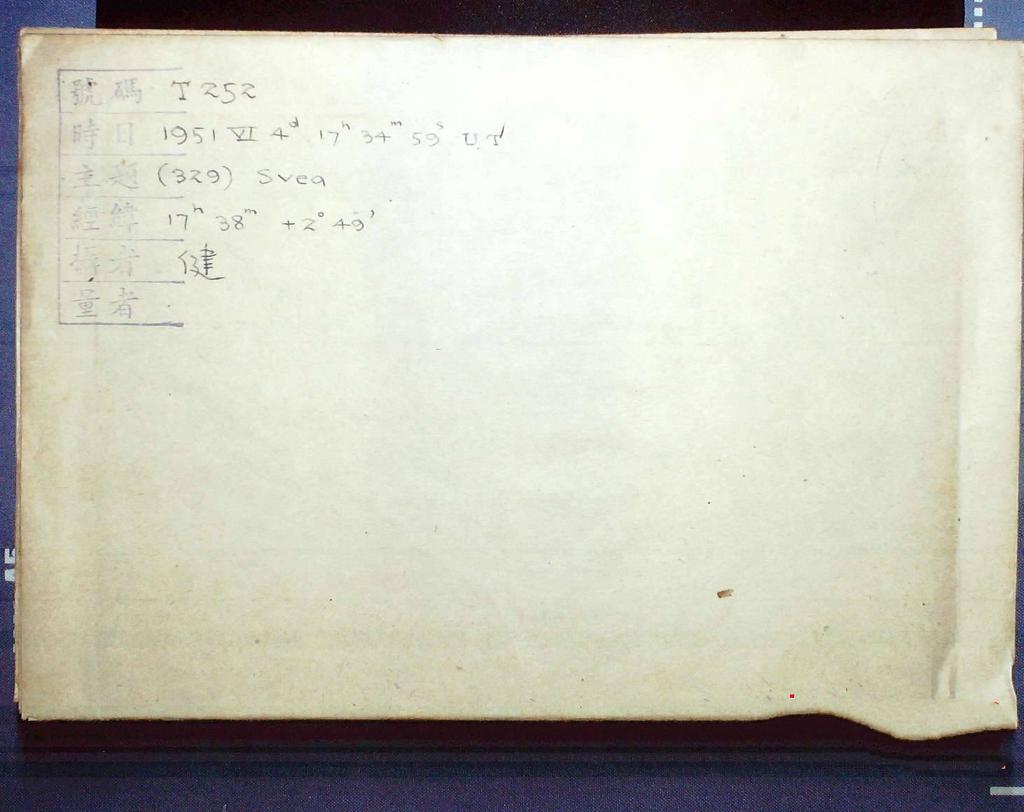 號碼 T 252
時日 1951 VI 4ᵈ 17ʰ 34ᵐ 59ˢ U.T
主題 (329) Svea
經緯 17ʰ 38ᵐ +2° 49'
攝者 健
量者